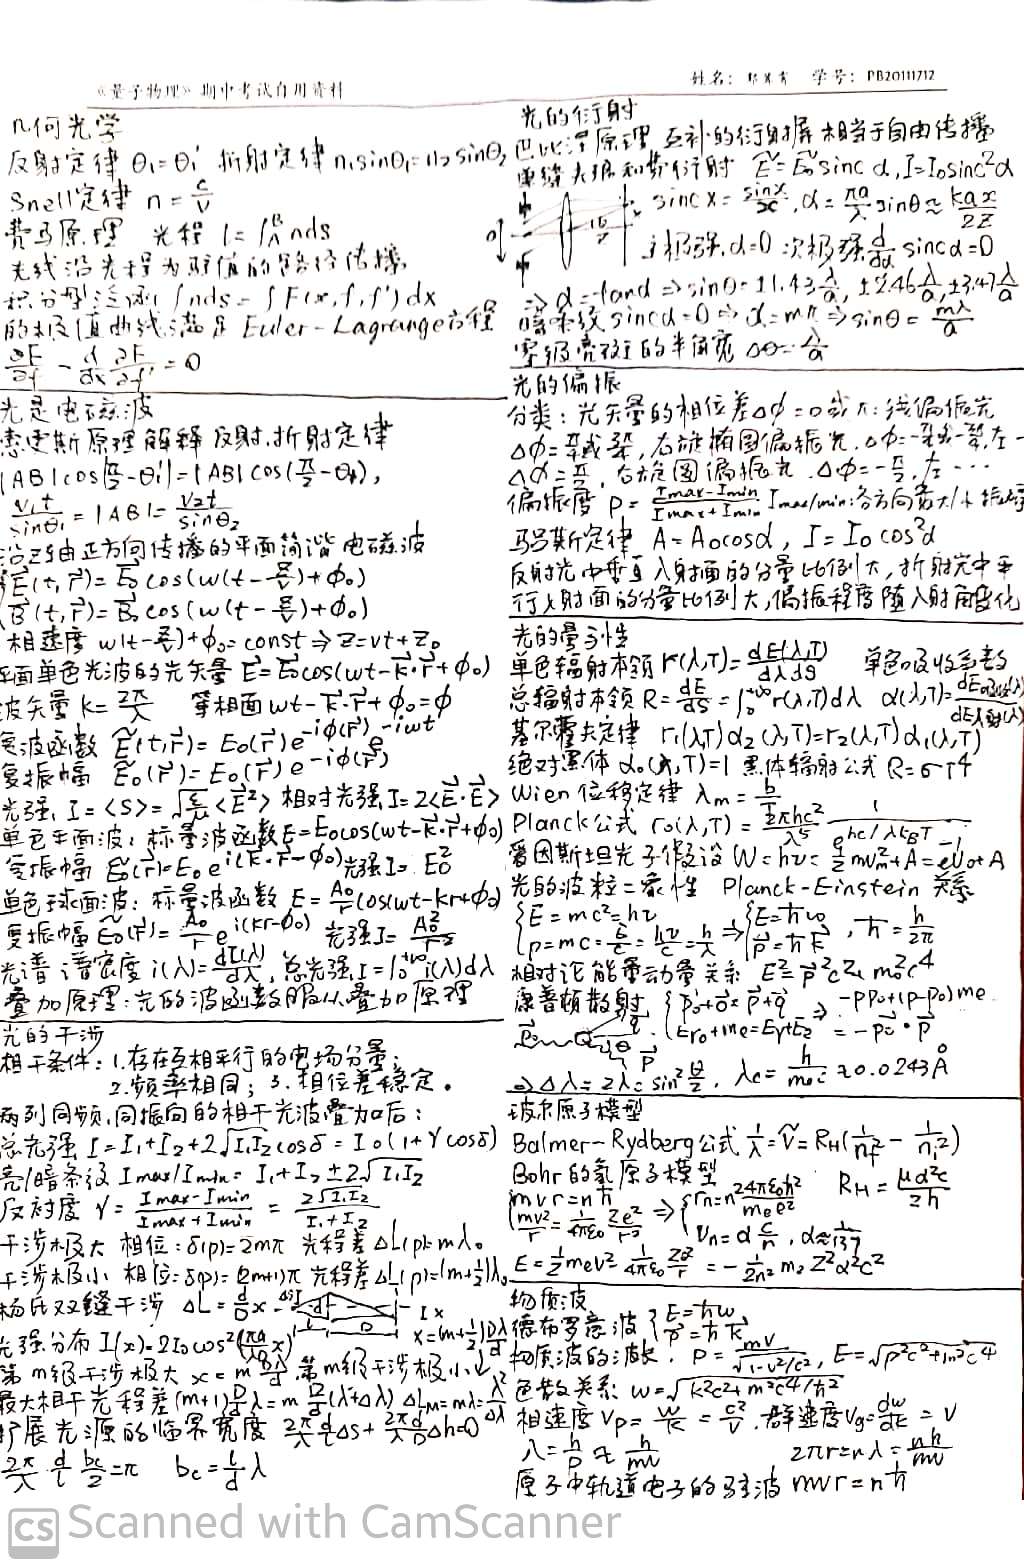 《量子物理》期中考试自用资料
姓名： 学号：PB20111712
几何光学
反射定律 θ₁=θ₁' 折射定律 n₁sinθ₁=n₂sinθ₂
Snell定律 n=c/v
费马原理 光程 l=∫_A^B nds
光线沿光程为驻值的路径传播，
积分型泛函∫nds=∫F(x,f,f')dx
的极值曲线满足Euler-Lagrange方程
∂F/∂f - d/dx ∂F/∂f' = 0
光是电磁波
惠更斯原理解释反射,折射定律
|AB|cos(π/2-θ₁')=|AB|cos(π/2-θ₁),
v₁t/sinθ₁=|AB|=v₂t/sinθ₂
沿z轴正方向传播的平面简谐电磁波
E⃗(t,r⃗)=E⃗₀cos(w(t-z/v)+φ₀)
B⃗(t,r⃗)=B⃗₀cos(w(t-z/v)+φ₀)
相速度 w(t-z/v)+φ₀=const⇒z=vt+z₀
平面单色光波的光矢量E⃗=E⃗₀cos(wt-k⃗·r⃗+φ₀)
波矢量k=2π/λ 等相面wt-k⃗·r⃗+φ₀=φ
复波函数 Ẽ(t,r⃗)=E₀(r⃗)e^{-iφ(r⃗)}e^{-iwt}
复振幅 Ẽ₀(r⃗)=E₀(r⃗)e^{-iφ(r⃗)}
光强,I=<S>=√(ε/μ)<E⃗²> 相对光强I=2<E⃗·E⃗>
单色平面波：标量波函数E=E₀cos(wt-k⃗·r⃗+φ₀)
复振幅 Ẽ₀(r⃗)=E₀e^{i(k⃗·r⃗-φ₀)}光强I=E₀²
单色球面波：标量波函数 E=A₀/r cos(wt-kr+φ₀)
复振幅Ẽ₀(r⃗)=A₀/r e^{i(kr-φ₀)} 光强I=A₀²/r²
光谱 谱密度i(λ)=dI(λ)/dλ,总光强I=∫₀^{+∞}i(λ)dλ
叠加原理：光的波函数服从叠加原理
光的干涉
相干条件：1.存在互相平行的电场分量；
2.频率相同；3.相位差稳定。
两列同频,同振向的相干光波叠加后：
总光强 I=I₁+I₂+2√(I₁I₂)cosδ=I₀(1+γcosδ)
亮/暗条纹 Imax/Imin=I₁+I₂±2√(I₁I₂)
反衬度 γ=(Imax-Imin)/(Imax+Imin)=2√(I₁I₂)/(I₁+I₂)
干涉极大 相位:δ(p)=2mπ 光程差ΔL(p)=mλ。
干涉极小 相位:δ(p)=(2m+1)π 光程差ΔL(p)=(m+1/2)λ。
杨氏双缝干涉 ΔL=d/D x
x=(m+1/2)Dλ/d
光强分布I(x)=2I₀cos²(πd/λD x)
第m级干涉极大 x=m Dλ/d,第m级干涉极小↓
最大相干光程差(m+1)D/d λ=m D/d(λ+Δλ) ΔL_M=mλ=λ²/Δλ
扩展光源的临界宽度 2π/λ d/l Δs+2π/λ d/D Δh=0
2π/λ d/l b_c/2=π b_c=l/d λ
光的衍射
巴比涅原理 互补的衍射屏相当于自由传播
单缝夫琅和费衍射 Ẽ=Ẽ₀sincα,I=I₀sinc²α
sinc x=sinx/x,α=πa/λ sinθ≈kax/2z
主极强,α=0 次极强d/dα sincα=0
⇒α=tanα⇒sinθ=±1.43λ/a,±2.46λ/a,±3.47λ/a
暗条纹sincα=0⇒α=mπ⇒sinθ=mλ/a
零级亮斑的半角宽 Δθ=λ/a
光的偏振
分类：光矢量的相位差Δφ=0或π:线偏振光
偏振度 P=(Imax-Imin)/(Imax+Imin) Imax/min:各方向最大/小振幅
马吕斯定律 A=A₀cosα, I=I₀cos²α
反射光中垂直入射面的分量比例大,折射光中平
行入射面的分量比例大,偏振程度随入射角变化
光的量子性
单色辐射本领r(λ,T)=dE(λ,T)/dλdS 单色吸收系数
总辐射本领R=dE/dS=∫₀^{+∞}r(λ,T)dλ α(λ,T)=dE吸收(λ)/dE入射(λ)
基尔霍夫定律 r₁(λ,T)α₂(λ,T)=r₂(λ,T)α₁(λ,T)
绝对黑体 α₀(λ,T)=1 黑体辐射公式R=σT⁴
Wien位移定律 λm=b/T
Planck公式 r₀(λ,T)=2πhc²/λ⁵ 1/(e^{hc/λk_BT}-1)
爱因斯坦光子假设 W=hν=1/2 mv²m+A=eU₀+A
光的波粒二象性 Planck-Einstein关系
{E=mc²=hν ⇒ {E=ħw
{p=mc=E/c=hν/c=h/λ {p⃗=ħk⃗ ,ħ=h/2π
相对论能量动量关系 E²=p²c²+m₀²c⁴
康普顿散射
⇒Δλ=2λc sin²θ/2, λc=h/m₀c≈0.0243Å
玻尔原子模型
Balmer-Rydberg公式1/λ=ṽ=R_H(1/n_f²-1/n_i²)
Bohr的氢原子模型 R_H=μα²c/2h
{mvr=nħ ⇒ {r_n=n² 4πε₀ħ²/m_e e²
{mv²/r=1/4πε₀ Ze²/r² {v_n=α c/n, α≈1/137
E=1/2 m_ev² 1/4πε₀ Ze²/r=-1/2n² m_e Z²α²c²
物质波
德布罗意波{E=ħw
{p⃗=ħk⃗
物质波的波长. P=mv/√(1-v²/c²), E=√(p²c²+m²c⁴)
色散关系 w=√(k²c²+m²c⁴/ħ²)
相速度vp=w/k=c²/v.群速度vg=dw/dk=v
λ=h/p≈h/mv 2πr=nλ=nh/mv
原子中轨道电子的驻波 mvr=nħ
CS Scanned with CamScanner